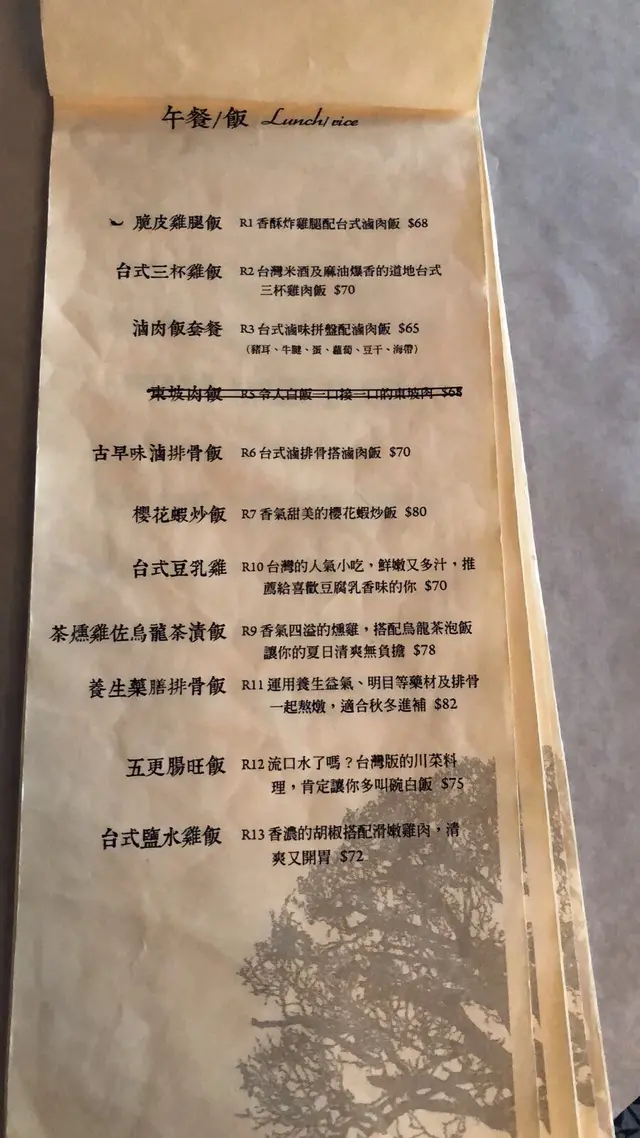 午餐/飯 Lunch/rice
脆皮雞腿飯 R1 香酥炸雞腿配台式滷肉飯 $68
台式三杯雞飯 R2 台灣米酒及麻油爆香的道地台式
三杯雞肉飯 $70
滷肉飯套餐 R3 台式滷味拼盤配滷肉飯 $65
(豬耳、牛腱、蛋、蘿蔔、豆干、海帶)
東坡肉飯 R5 令人白飯一口接一口的東坡肉 $68
古早味滷排骨飯 R6 台式滷排骨搭滷肉飯 $70
櫻花蝦炒飯 R7 香氣甜美的櫻花蝦炒飯 $80
台式豆乳雞 R10 台灣的人氣小吃，鮮嫩又多汁，推
薦給喜歡豆腐乳香味的你 $70
茶燻雞佐烏龍茶漬飯 R9 香氣四溢的燻雞，搭配烏龍茶泡飯
讓你的夏日清爽無負擔 $78
養生藥膳排骨飯 R11 運用養生益氣、明目等藥材及排骨
一起熬燉，適合秋冬進補 $82
五更腸旺飯 R12 流口水了嗎？台灣版的川菜料
理，肯定讓你多叫碗白飯 $75
台式鹽水雞飯 R13 香濃的胡椒搭配滑嫩雞肉，清
爽又開胃 $72